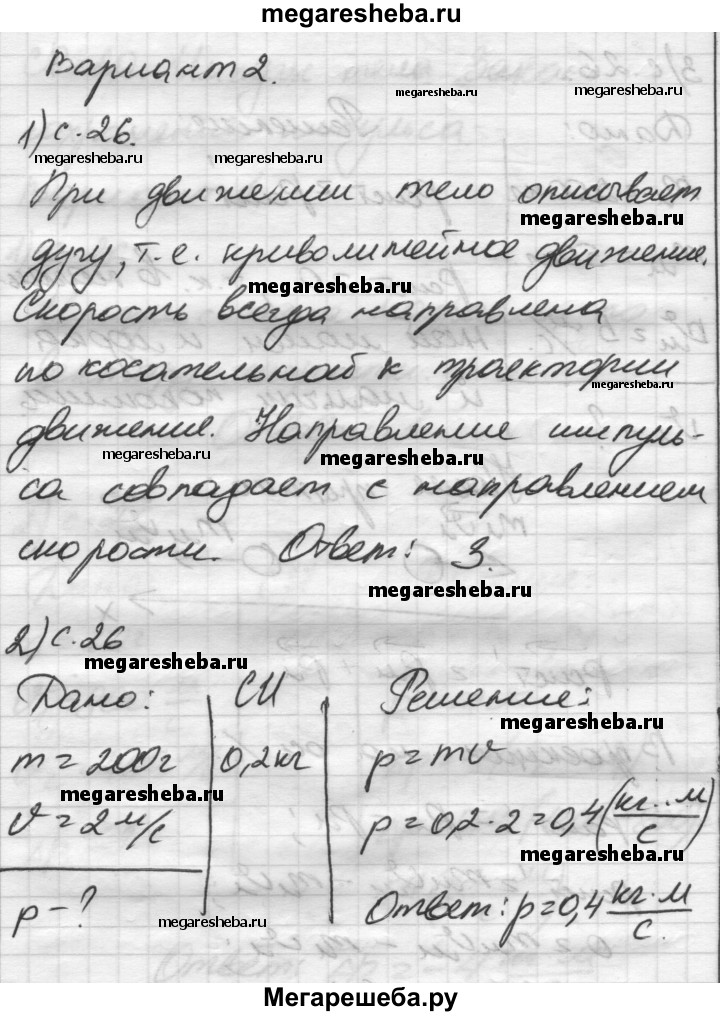 megaresheba.ru
Вариант 2.
megaresheba.ru
megaresheba.ru
1) с. 26.
megaresheba.ru
megaresheba.ru
При движении тело описывает
megaresheba.ru
дугу, т.е. криволинейное движение.
megaresheba.ru
Скорость всегда направлена
по касательной к траектории
megaresheba.ru
движение. Направление импуль-
megaresheba.ru
megaresheba.ru
са совпадает с направлением
скорости. Ответ: 3.
megaresheba.ru
2) с. 26
megaresheba.ru
Дано: СИ Решение:
megaresheba.ru
m = 200г 0,2кг p = mv
megaresheba.ru
v = 2 м/с p = 0,2·2 = 0,4 (кг·м/с)
megaresheba.ru
p - ? Ответ: p = 0,4 кг·м/с.
megaresheba.ru
Мегарешеба.ру